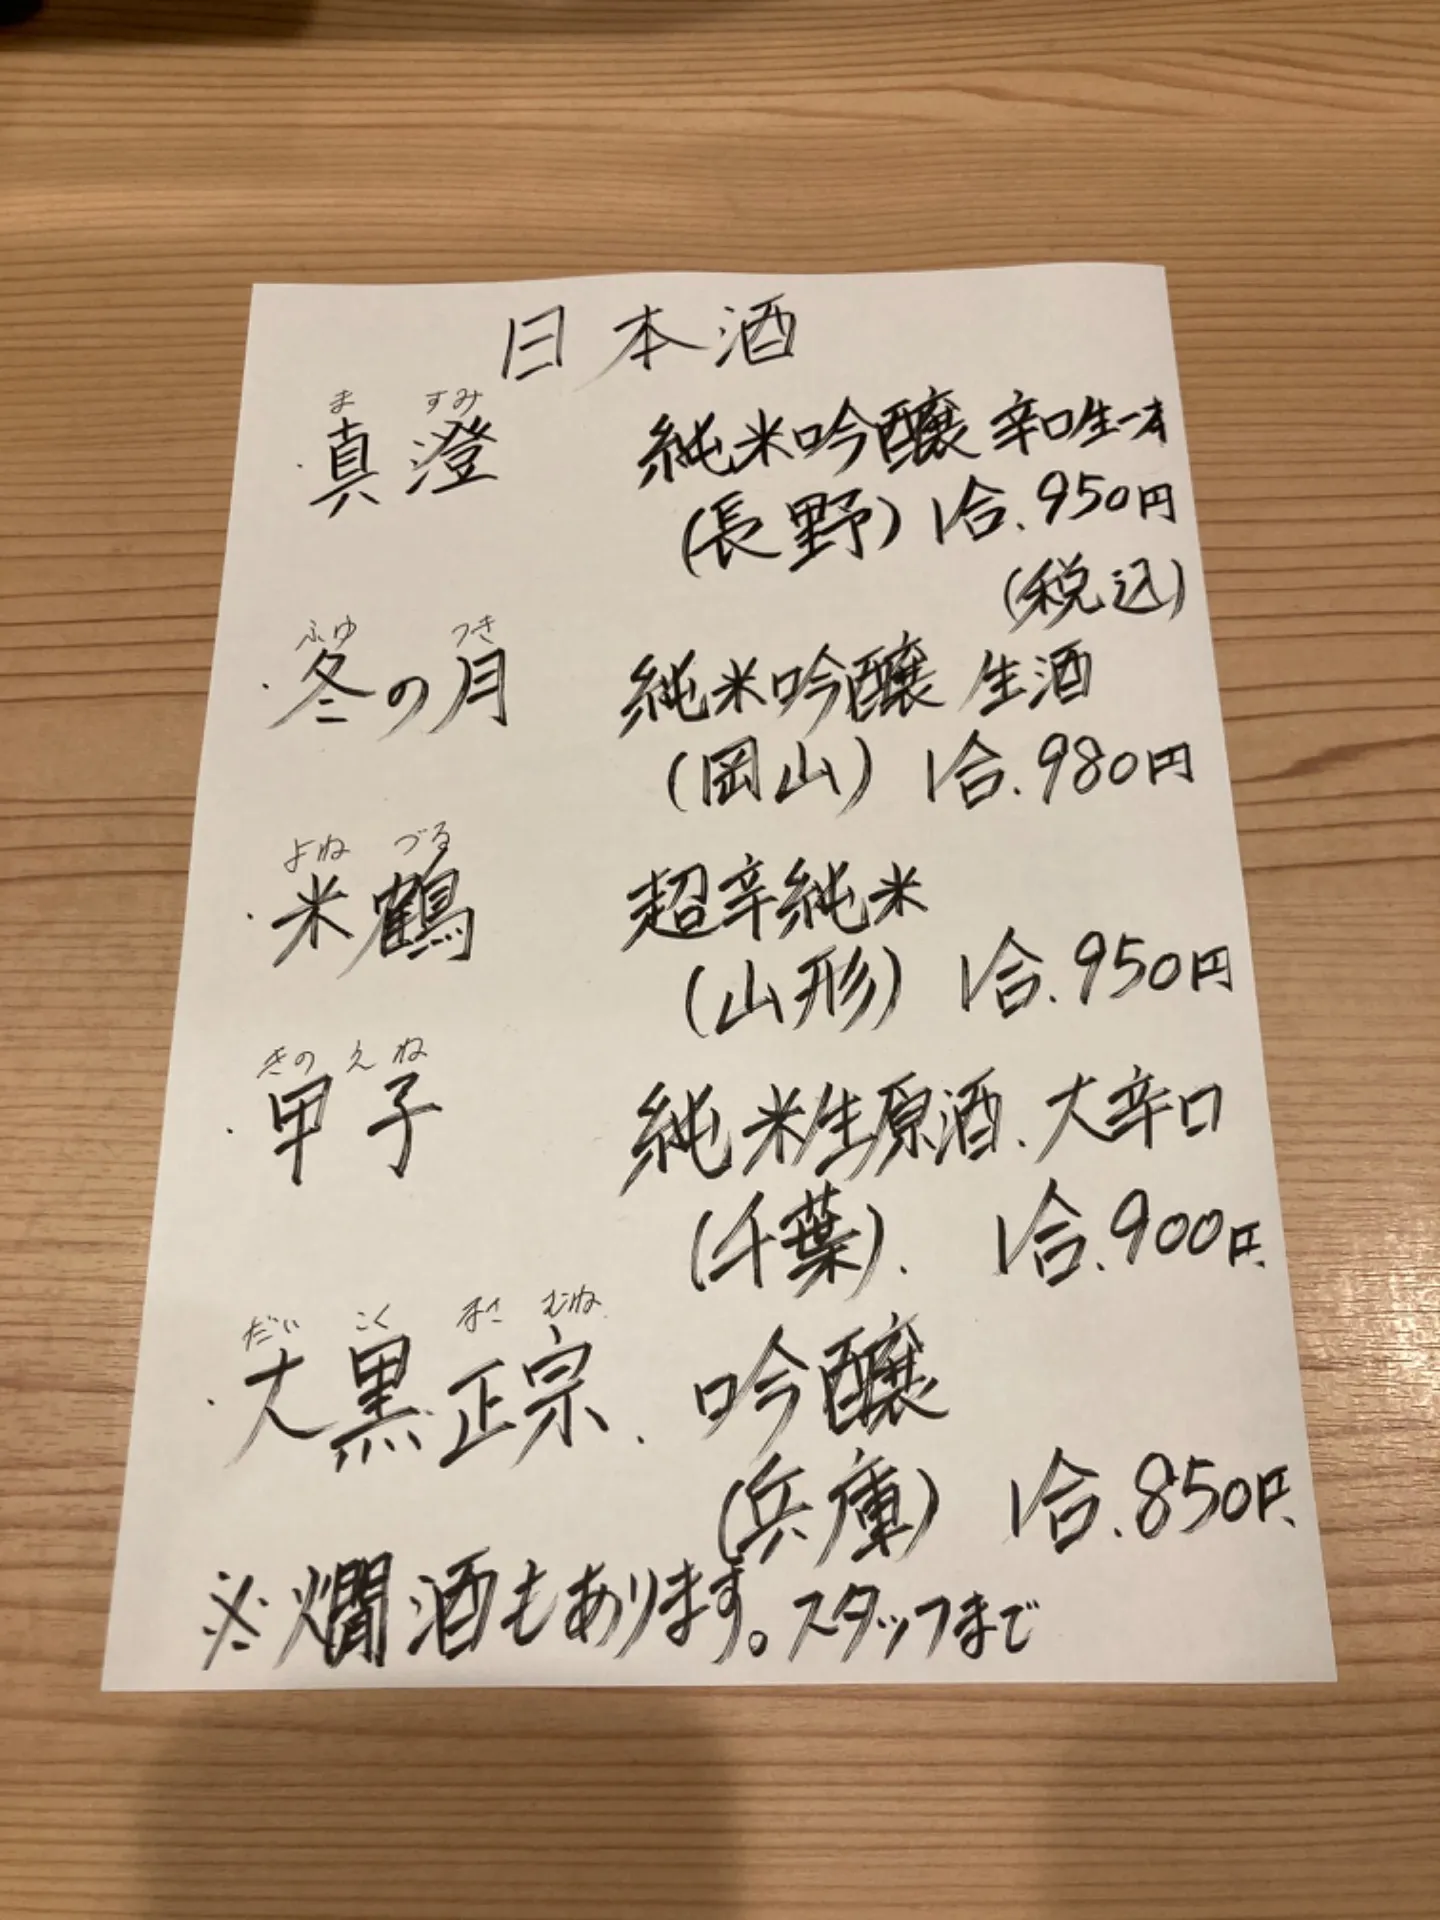 日本酒
ま すみ
・真澄 純米吟醸 辛口生一本
(長野) 1合.950円
(税込)
ふゆ つき
・冬の月 純米吟醸 生酒
(岡山) 1合.980円
よね づる
・米鶴 超辛純米
(山形) 1合.950円
きのえね
・甲子 純米生原酒.大辛口
(千葉). 1合.900円
だい こく まさ むね
・大黒正宗.吟醸
(兵庫) 1合.850円
※燗酒もあります。スタッフまで